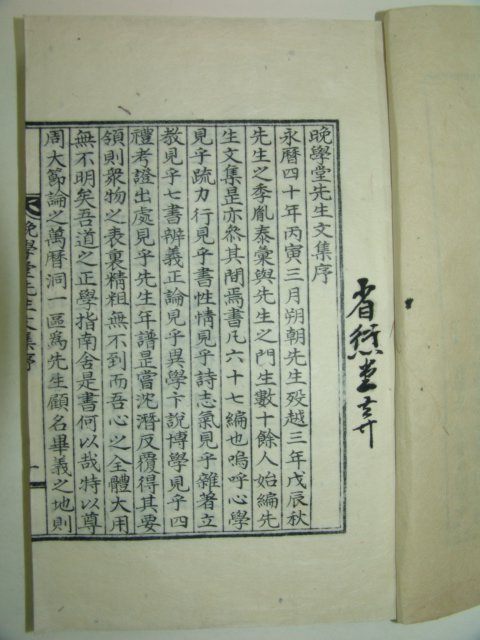 省愆堂幷
晩學堂先生文集序
永曆四十年丙寅三月朔朝先生歿越三年戊辰秋
先生之季胤泰彙與先生之門生數十餘人始編先
生文集是亦叅其間焉書凡六十七編也嗚呼心學
見乎疏力行見乎書性情見乎詩志氣見乎雜著立
敎見乎七書辨義正論見乎異學卞說博學見乎四
禮考證出處見乎先生年譜是嘗沈潛反覆得其要
領則衆物之表裏精粗無不到而吾心之全體大用
無不明矣吾道之正學指南舍是書何以哉特以尊
周大節論之萬曆洞一區爲先生顧名畢義之地則
晩學堂先生文集序
一